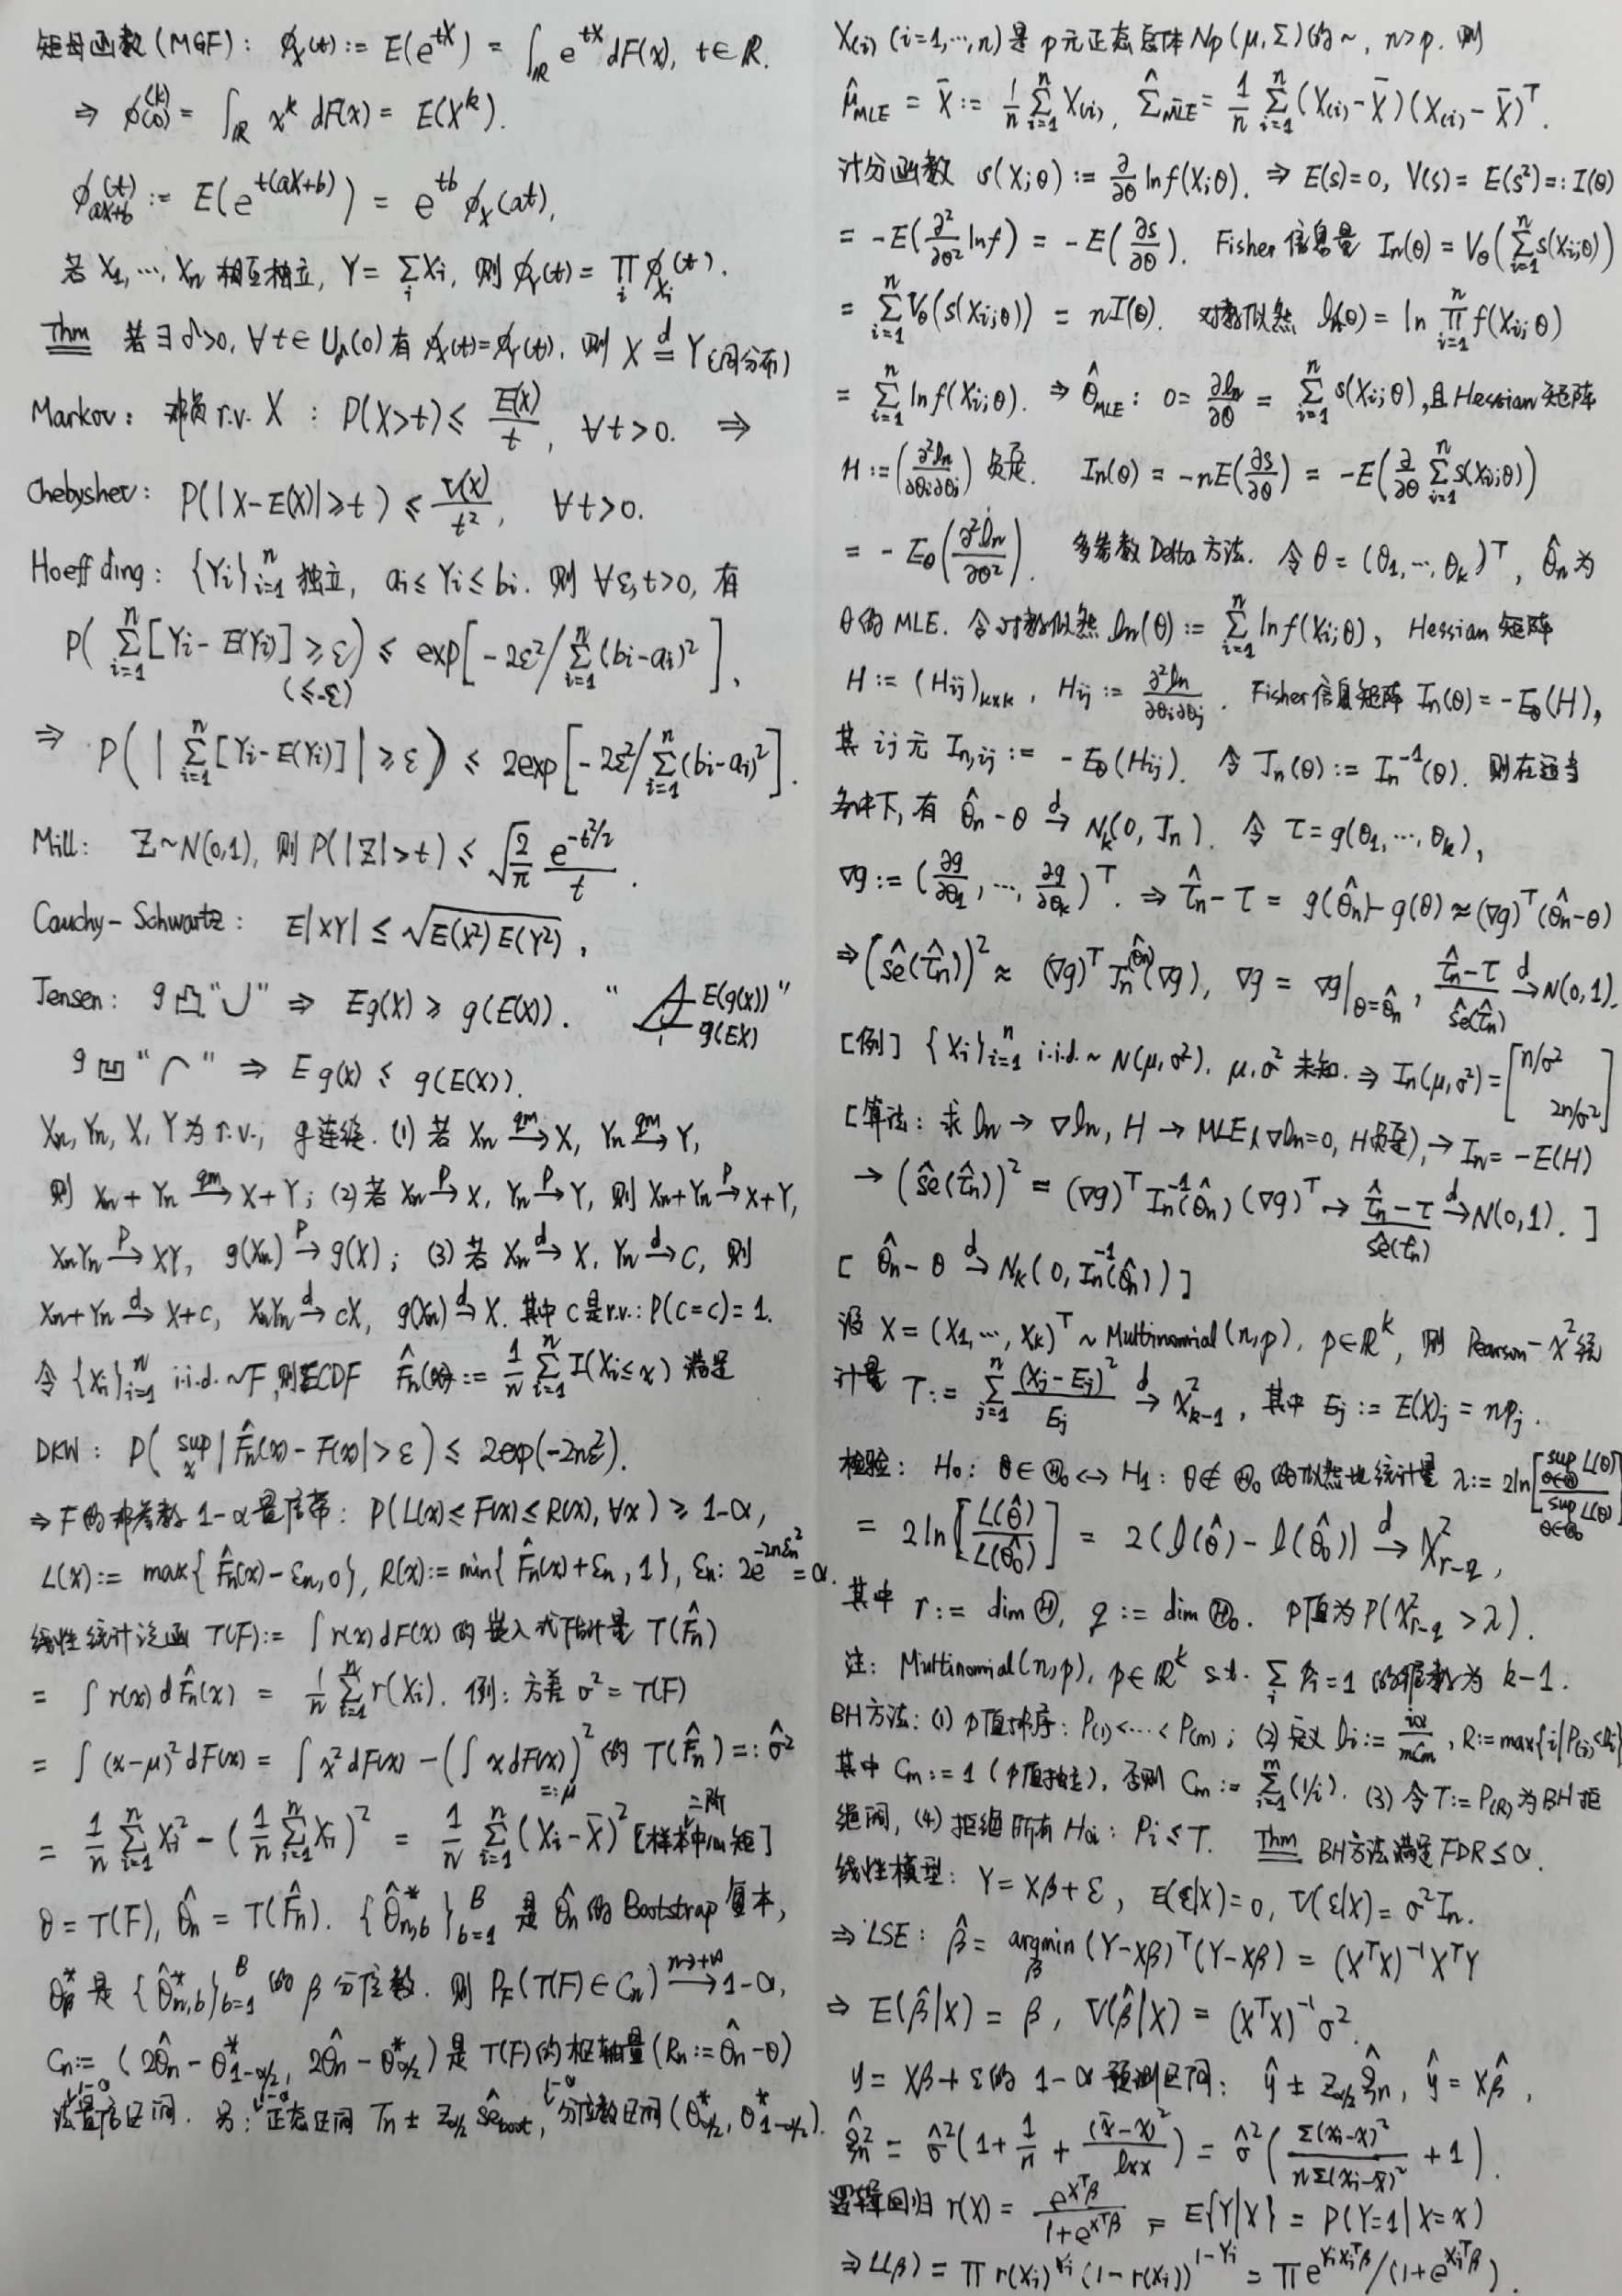 矩母函数(MGF): ϕ_X(t) := E(e^{tX}) = ∫_ℝ e^{tX} dF(x), t∈ℝ.
⇒ ϕ^{(k)}(0) = ∫_ℝ x^k dF(x) = E(X^k).
ϕ_{aX+b}(t) := E(e^{t(aX+b)}) = e^{tb} ϕ_X(at),
若 X_1, ⋯, X_n 相互独立, Y = Σ_i X_i, 则 ϕ_Y(t) = Π_i ϕ_{X_i}(t).
Thm 若∃δ>0, ∀t∈U_δ(0) 有 ϕ_X(t)=ϕ_Y(t), 则 X =^d Y (同分布)
Markov: 非负 r.v. X : P(X>t) ≤ E(X)/t, ∀t>0. ⇒
Chebyshev: P(|X-E(X)|≥t) ≤ V(X)/t², ∀t>0.
Hoeffding: {Y_i}_{i=1}^n 独立, a_i ≤ Y_i ≤ b_i. 则 ∀ε,t>0, 有
P( Σ_{i=1}^n [Y_i - E(Y_i)] ≥ ε ) ≤ exp[ -2ε²/Σ_{i=1}^n (b_i-a_i)² ],
(≤-ε)
⇒ P( | Σ_{i=1}^n [Y_i - E(Y_i)] | ≥ ε ) ≤ 2exp[ -2ε²/Σ_{i=1}^n (b_i-a_i)² ].
Mill: Z~N(0,1), 则 P(|Z|>t) ≤ √(2/π) e^{-t²/2}/t.
Cauchy-Schwartz: E|XY| ≤ √(E(X²)E(Y²)),
Jensen: g 凸"∪" ⇒ Eg(X) ≥ g(E(X)). " E(g(X)) g(EX) "
g 凹"⌒" ⇒ Eg(X) ≤ g(E(X)).
X_n, Y_n, X, Y 为 r.v., g连续. (1) 若 X_n →^{qm} X, Y_n →^{qm} Y,
则 X_n + Y_n →^{qm} X+Y; (2) 若 X_n →^P X, Y_n →^P Y, 则 X_n+Y_n →^P X+Y,
X_nY_n →^P XY, g(X_n) →^P g(X); (3) 若 X_n →^d X, Y_n →^d C, 则
X_n+Y_n →^d X+c, X_nY_n →^d cX, g(X_n) →^d X. 其中 c 是 r.v.: P(C=c)=1.
令 {X_i}_{i=1}^n i.i.d. ~F, 则ECDF F̂_n(x) := 1/n Σ_{i=1}^n I(X_i≤x) 满足
DKW: P( sup_x |F̂_n(x) - F(x)| > ε ) ≤ 2exp(-2nε²).
⇒ F 的非参数 1-α 置信带: P(L(x) ≤ F(x) ≤ R(x), ∀x) ≥ 1-α,
L(x) := max{F̂_n(x)-ε_n, 0}, R(x) := min{F̂_n(x)+ε_n, 1}, ε_n: 2e^{-2nε_n²} = α.
线性统计泛函 T(F) := ∫r(x)dF(x) 的嵌入式估计量 T(F̂_n)
= ∫ r(x) dF̂_n(x) = 1/n Σ_{i=1}^n r(X_i). 例: 方差 σ² = T(F)
= ∫ (x-μ)² dF(x) = ∫ x² dF(x) - (∫ x dF(x))² 的 T(F̂_n) =: σ̂²
=: μ
= 1/n Σ_{i=1}^n X_i² - (1/n Σ_{i=1}^n X_i)² = 1/n Σ_{i=1}^n (X_i - X̄)² [样本二阶中心矩]
θ = T(F), θ̂_n = T(F̂_n). {θ̂*_{n,b}}_{b=1}^B 是 θ̂_n 的 Bootstrap 复本,
θ*_β 是 {θ̂*_{n,b}}_{b=1}^B 的 β 分位数. 则 P_F(T(F)∈C_n) →^{n→+∞} 1-α,
C_n := (2θ̂_n - θ*_{1-α/2}, 2θ̂_n - θ*_{α/2}) 是 T(F) 的枢轴量 (R_n := θ̂_n - θ)
法1-α置信区间. 另: 1-α正态区间 T_n ± z_{α/2} sê_boot, 1-α分位数区间 (θ*_{α/2}, θ*_{1-α/2}).
X_(i) (i=1,⋯,n) 是 p 元正态总体 N_p(μ,Σ) 的~, n>p. 则
μ̂_MLE = X̄ := 1/n Σ_{i=1}^n X_(i), Σ̂_MLE = 1/n Σ_{i=1}^n (X_(i)-X̄)(X_(i)-X̄)^T.
计分函数 s(X;θ) := ∂/∂θ ln f(X;θ). ⇒ E(s)=0, V(s) = E(s²) =: I(θ)
= -E(∂²/∂θ² ln f) = -E(∂s/∂θ). Fisher 信息量 I_n(θ) = V_θ(Σ_{i=1}^n s(X_i;θ))
= Σ_{i=1}^n V_θ(s(X_i;θ)) = nI(θ). 对数似然 l_n(θ) = ln Π_{i=1}^n f(X_i;θ)
= Σ_{i=1}^n ln f(X_i;θ). ⇒ θ̂_MLE: 0 = ∂l_n/∂θ = Σ_{i=1}^n s(X_i;θ), 且 Hessian 矩阵
H := (∂²l_n/∂θ_i∂θ_j) 负定. I_n(θ) = -nE(∂s/∂θ) = -E(∂/∂θ Σ_{i=1}^n s(X_i;θ))
= -E_θ(∂²l_n/∂θ²). 多参数 Delta 方法. 令 θ = (θ_1,⋯,θ_k)^T, θ̂_n 为
θ 的 MLE. 令对数似然 l_n(θ) := Σ_{i=1}^n ln f(X_i;θ), Hessian 矩阵
H := (H_ij)_{k×k}, H_ij := ∂²l_n/∂θ_i∂θ_j. Fisher 信息矩阵 I_n(θ) = -E_θ(H),
其 ij 元 I_{n,ij} := -E_θ(H_ij). 令 J_n(θ) := I_n^{-1}(θ). 则在适当
条件下, 有 θ̂_n - θ →^d N_k(0, J_n). 令 τ = g(θ_1,⋯,θ_k),
∇g := (∂g/∂θ_1, ⋯, ∂g/∂θ_k)^T. ⇒ τ̂_n - τ = g(θ̂_n) - g(θ) ≈ (∇g)^T(θ̂_n-θ)
⇒ (sê(τ̂_n))² ≈ (∇g)^T J_n(θ̂_n) (∇g), ∇g = ∇g|_{θ=θ̂_n}, (τ̂_n-τ)/sê(τ̂_n) →^d N(0,1).
[例] {X_i}_{i=1}^n i.i.d. ~ N(μ,σ²). μ,σ² 未知. ⇒ I_n(μ,σ²) = [n/σ² 2n/σ²]
[算法: 求 l_n → ∇l_n, H → MLE(∇l_n=0, H负定), → I_n = -E(H)
→ (sê(τ̂_n))² = (∇g)^T I_n^{-1}(θ̂_n) (∇g)^T → (τ̂_n-τ)/sê(τ̂_n) →^d N(0,1). ]
[ θ̂_n - θ →^d N_k(0, I_n^{-1}(θ̂_n)) ]
设 X = (X_1,⋯,X_k)^T ~ Multinomial(n,p), p∈ℝ^k, 则 Pearson-χ² 统
计量 T := Σ_{j=1}^n (X_j-E_j)²/E_j →^d χ²_{k-1}, 其中 E_j := E(X)_j = np_j.
检验: H_0: θ∈Θ_0 ↔ H_1: θ∉Θ_0 的似然比统计量 λ := 2ln[sup_{θ∈Θ} L(θ)/sup_{θ∈Θ_0} L(θ)]
= 2ln[L(θ̂)/L(θ̂_0)] = 2(l(θ̂) - l(θ̂_0)) →^d χ²_{r-q},
其中 r := dim Θ, q := dim Θ_0. p值为 P(χ²_{r-q} > λ).
注: Multinomial(n,p), p∈ℝ^k s.t. Σ_i P_i = 1 的维数为 k-1.
BH方法: (1) p值排序: P_(1)<⋯<P_(m); (2) 定义 l_i := iα/mC_m, R := max{i|P_(i)<l_i}
其中 C_m := 1 (p值独立), 否则 C_m := Σ_{i=1}^m (1/i). (3) 令 T := P_(R) 为BH拒
绝阈, (4) 拒绝所有 H_{0i}: P_i ≤ T. Thm BH方法满足 FDR ≤ α.
线性模型: Y = Xβ + ε, E(ε|X)=0, V(ε|X) = σ²I_n.
⇒ LSE: β̂ = argmin_β (Y-Xβ)^T(Y-Xβ) = (X^TX)^{-1}X^TY
⇒ E(β̂|X) = β, V(β̂|X) = (X^TX)^{-1}σ².
y = Xβ+ε 的 1-α 预测区间: ŷ ± z_{α/2} ξ̂_n, ŷ = Xβ̂,
ξ̂_n² = σ̂²(1 + 1/n + (x̄-x)²/l_xx) = σ̂²(Σ(x_i-x)²/(nΣ(x_i-x̄)²) + 1).
逻辑回归 r(X) = e^{X^Tβ}/(1+e^{X^Tβ}) = E{Y|X} = P(Y=1|X=x)
⇒ L(β) = Π r(X_i)^{Y_i} (1-r(X_i))^{1-Y_i} = Π e^{Y_iX_i^Tβ}/(1+e^{X_i^Tβ}).